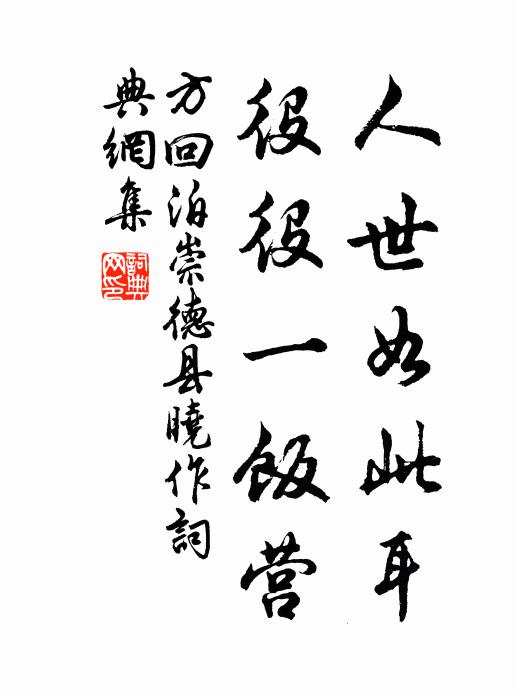 人世如此耳
役役一飯营
方回泊崇德县曉作詞
典網集
詞典网印